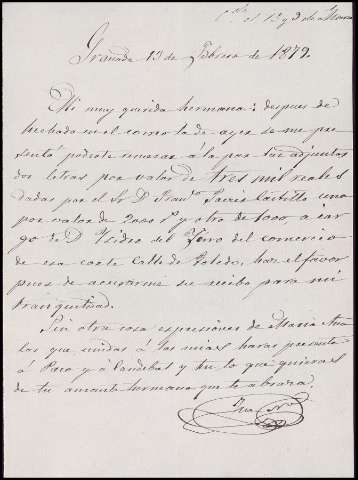 el 1º y 3 de Marzo
Granada 13 de Febrero de 1879.
Mi muy querida hermana: despues de
hechada en el correo la de ayer se me pre
sentó poderte enviar á la par las adjuntas
dos letras por valor de tres mil reales
dadas por el Sr D. Franco Javier Castillo una
por valor de 2000 rs y otra de 1000 a car
go de D. Ysidro del Yerro del comercio
de esa corte Calle de Toledo, haz el favor
pues de acusarme su recibo para mi
tranquilidad.
Sin otra cosa espresiones de Maria
las que unidas á las mias haras presente
á Paco y á Candelas y tu lo que quieras
de tu amante hermano que te abraza.